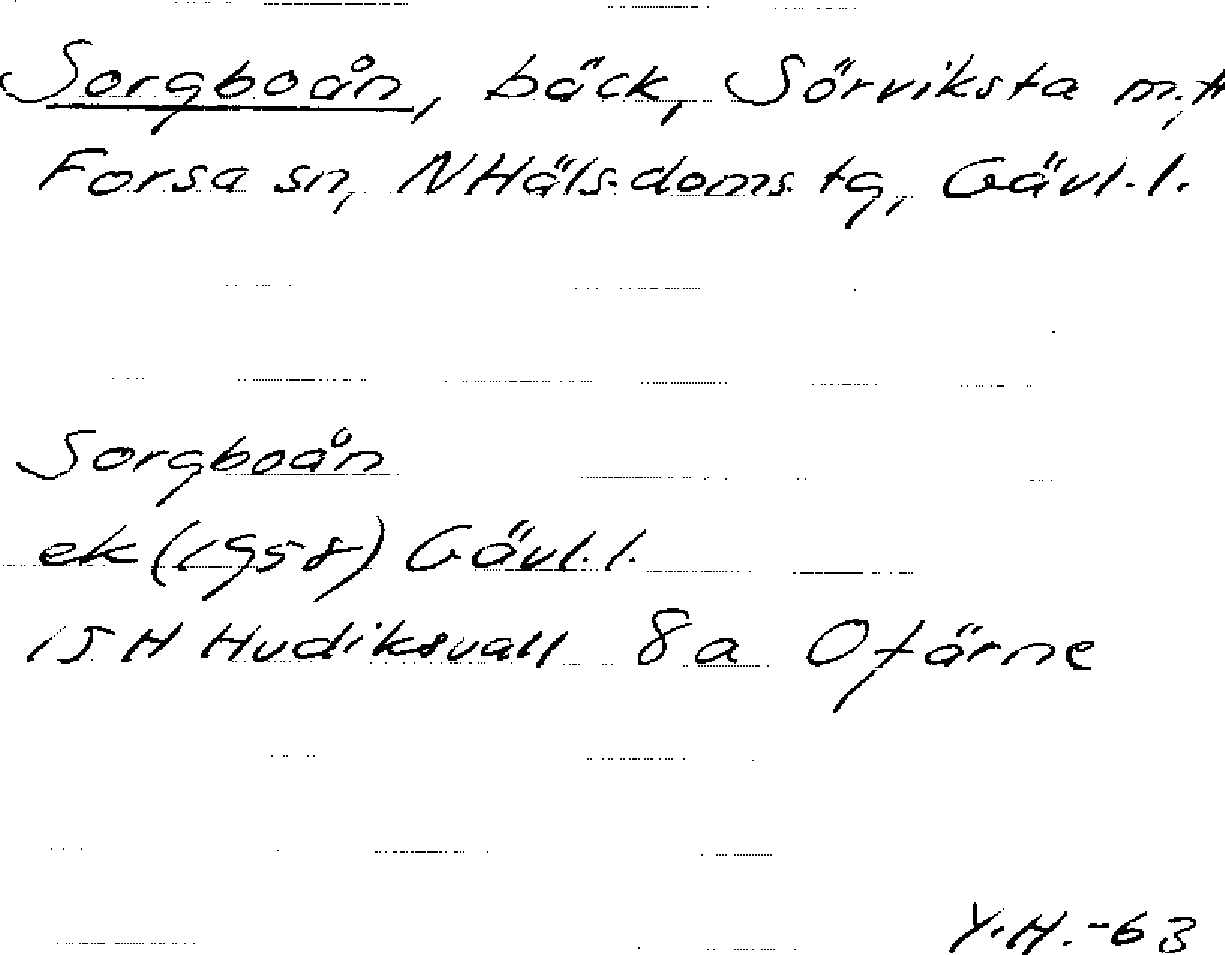 Sorgboån, bäck, Sörviksta m.fl
Forsa sn, NHäls.doms. tg, Gävl.l.
Sorgboån
ek (1958) Gävl.l.
15H Hudiksvall 8a Ofärne
Y.H.-63